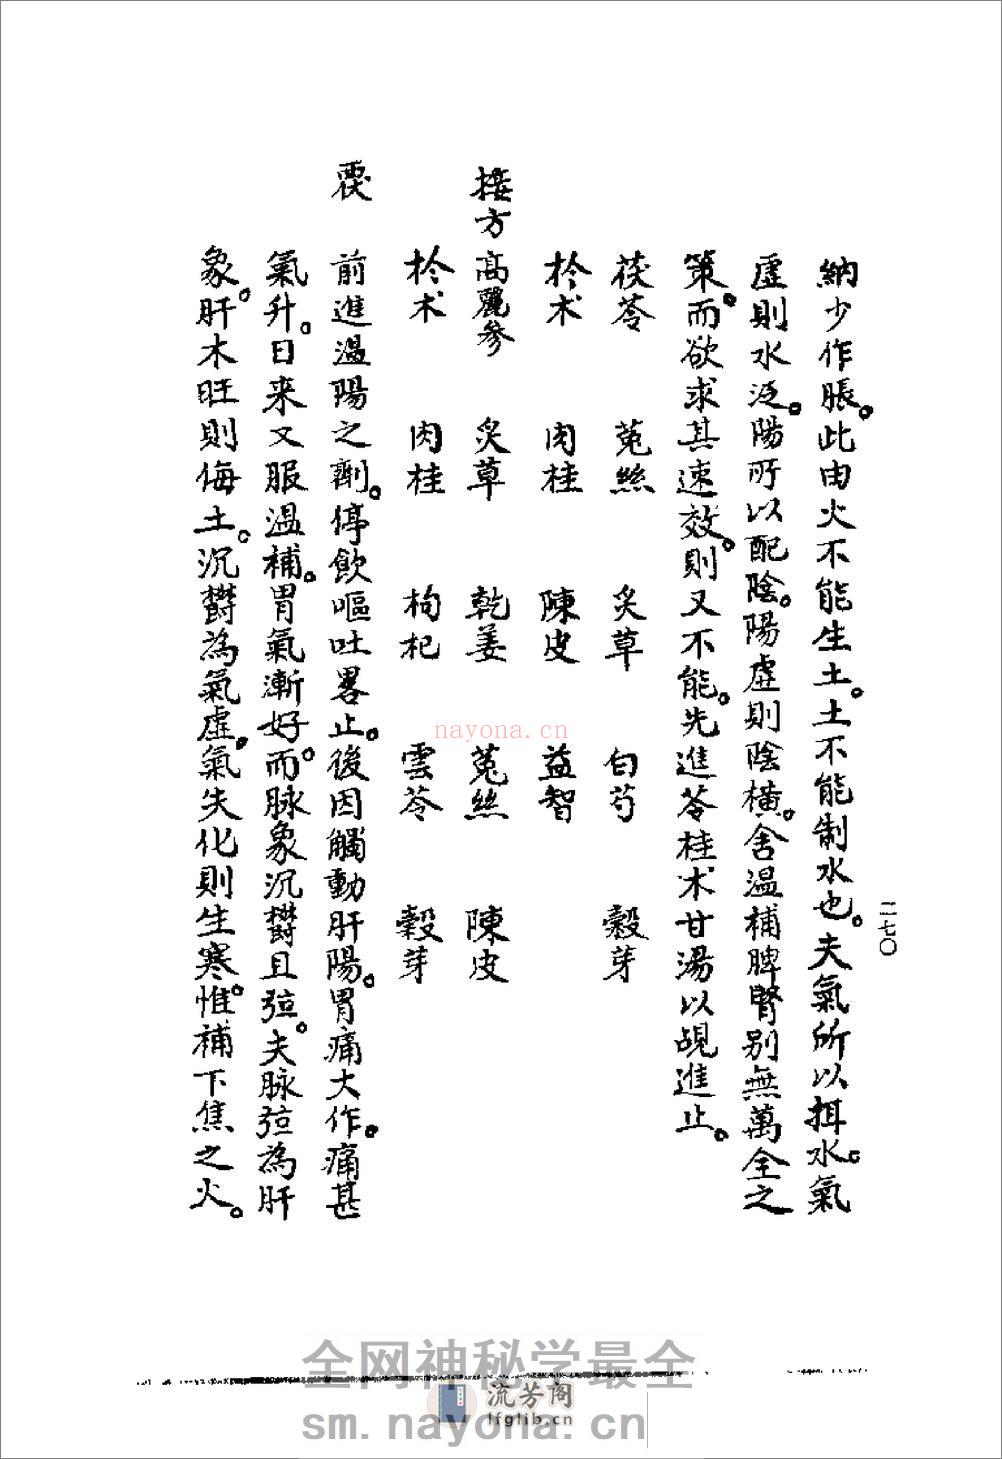 二七〇
納少作脹。此由火不能生土。土不能制水也。夫氣所以揖水。氣
虛則水泛。陽所以配陰。陽虛則陰橫。舍温補脾腎别無萬全之
策。而欲求其速效。則又不能。先進苓桂术甘湯以覘進止。
茯苓 菟絲 炙草 白芍 穀芽
於术 肉桂 陳皮 益智
接方 高麗參 炙草 乾姜 菟絲 陳皮
於术 肉桂 枸杞 雲苓 穀芽
覆 前進温陽之劑。停飲嘔吐畧止。後因觸動肝陽。胃痛大作。痛甚
氣升。日来又服温補。胃氣漸好。而脉象沉欝且弦。夫脉弦為肝
象。肝木旺則侮土。沉欝為氣虛。氣失化則生寒。惟補下焦之火。
nayona.cn
全网神秘学最全
流芳阁
lfglib.cn
sm.nayona.cn